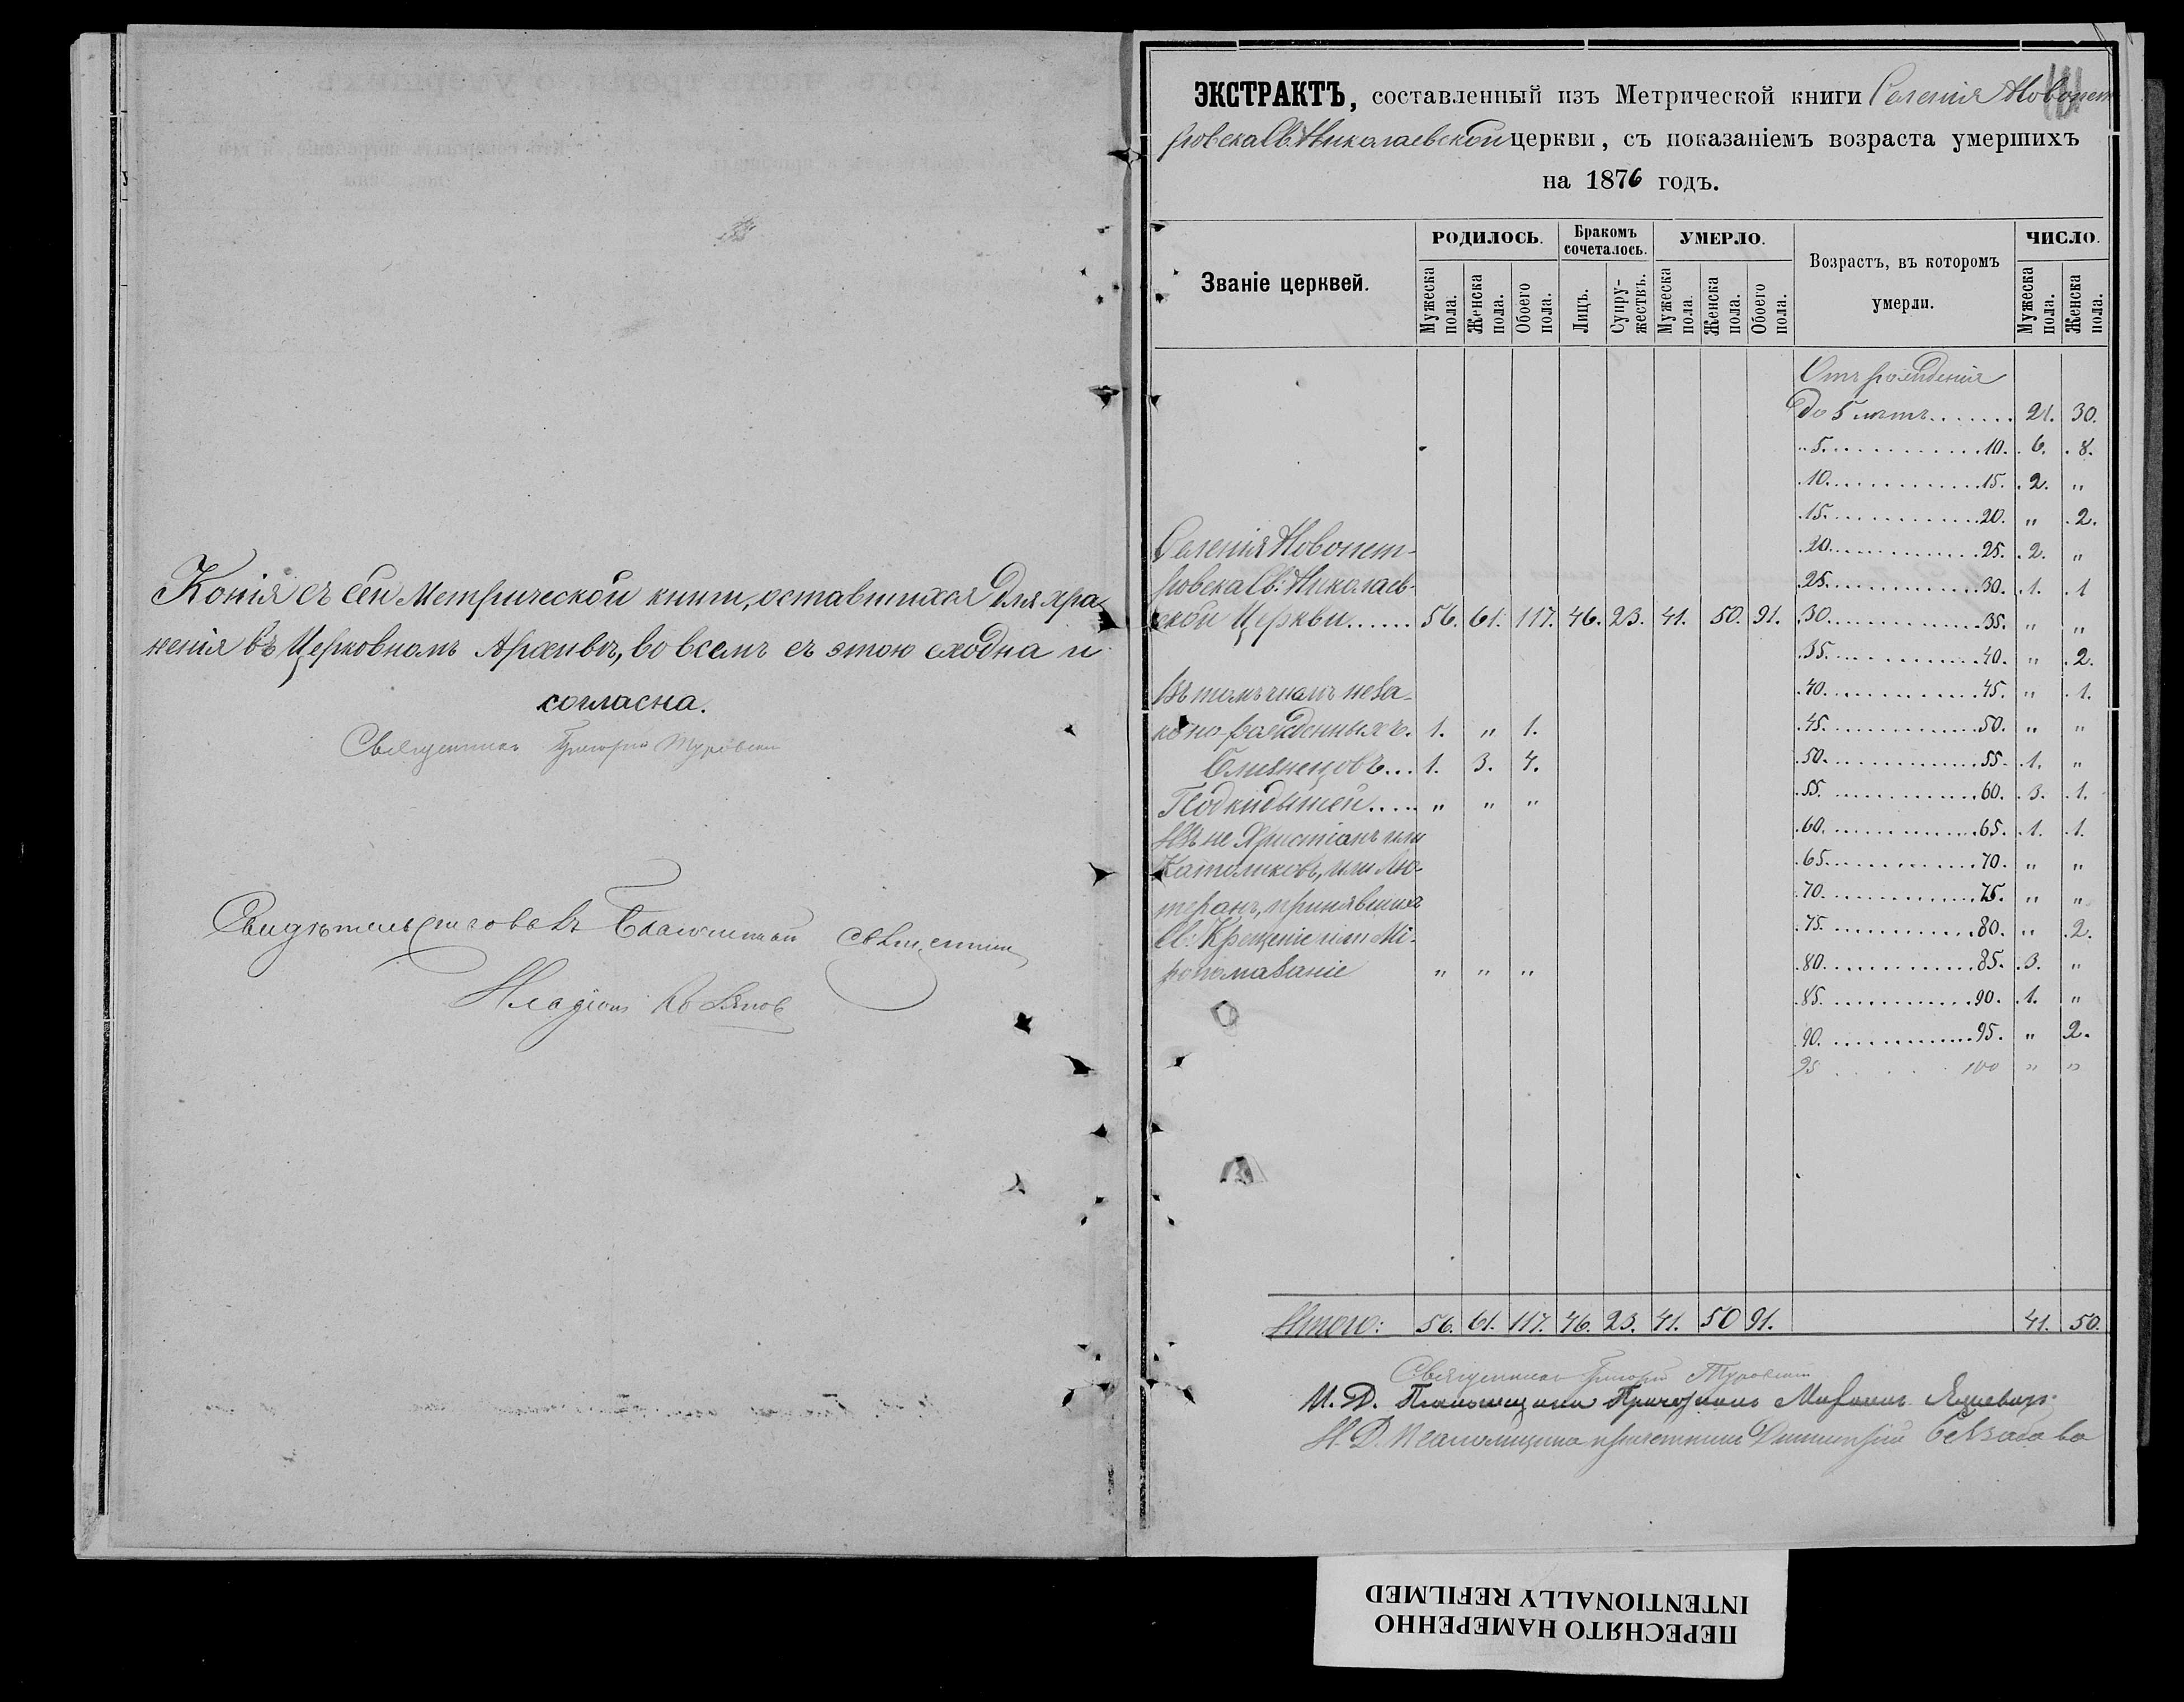 Копія съ сей Метрической книги, оставшихся для хра-
ненія въ Церковномъ Архивѣ, во всемъ съ этою сходна и
согласна.
Священникъ Григорій Туровскій
Свидѣтельствовалъ Благочинный Священникъ
ЭКСТРАКТЪ, составленный изъ Метрической книги Селенія Новопет
ровска Св. Николаевской церкви, съ показаніемъ возраста умершихъ
на 1876 годъ.
Званіе церквей. РОДИЛОСЬ. Бракомъ сочеталось. УМЕРЛО. Возрастъ, въ которомъ умерли. ЧИСЛО.
Мужеска пола. Женска пола. Обоего пола. Лицъ. Супру-жествъ. Мужеска пола. Женска пола. Обоего пола. Мужеска пола. Женска пола.
Отъ рожденія
до 5 лѣтъ....... 21. 30.
" 5. ............ 10. 6. 8.
10. ............ 15. 2. "
15. ............ 20. " 2.
20. ............ 25. 2. "
25. ............ 30. 1. 1
30. ............ 35. " "
35. ............ 40. " 2.
40. ............ 45. " 1.
45. ............ 50. " "
50. ............ 55. 1. "
55. ............ 60. 3. 1.
60. ............ 65. 1. 1.
65. ............ 70. " "
70. ............ 75. " "
75. ............ 80. " 2.
80. ............ 85. 3. "
85. ............ 90. 1. "
90. ............ 95. " 2.
95 . . . . . . 100 " "
Селенія Новопет-
ровска Св: Николаев-
ской Церкви...... 56. 61. 117. 46. 23. 41. 50. 91.
Въ томъ числѣ неза-
конно-рожденныхъ. 1. " 1.
Близнецовъ... 1. 3. 4.
Подкидышей..... " " "
Изъ не Христіанъ или
Католиковъ, или Лю-
теранъ, принявшихъ
Св: Крещеніе или Мѵ-
ропомазаніе " " "
Итого: 56. 61. 117. 46. 23. 41. 50 91. 41. 50.
Священникъ Григорій Туровскій
И. Д. Псаломщика Причетникъ
И. Д. Псаломщика причетникъ Димитрій
ПЕРЕСНЯТО НАМЕРЕННО
INTENTIONALLY REFILMED